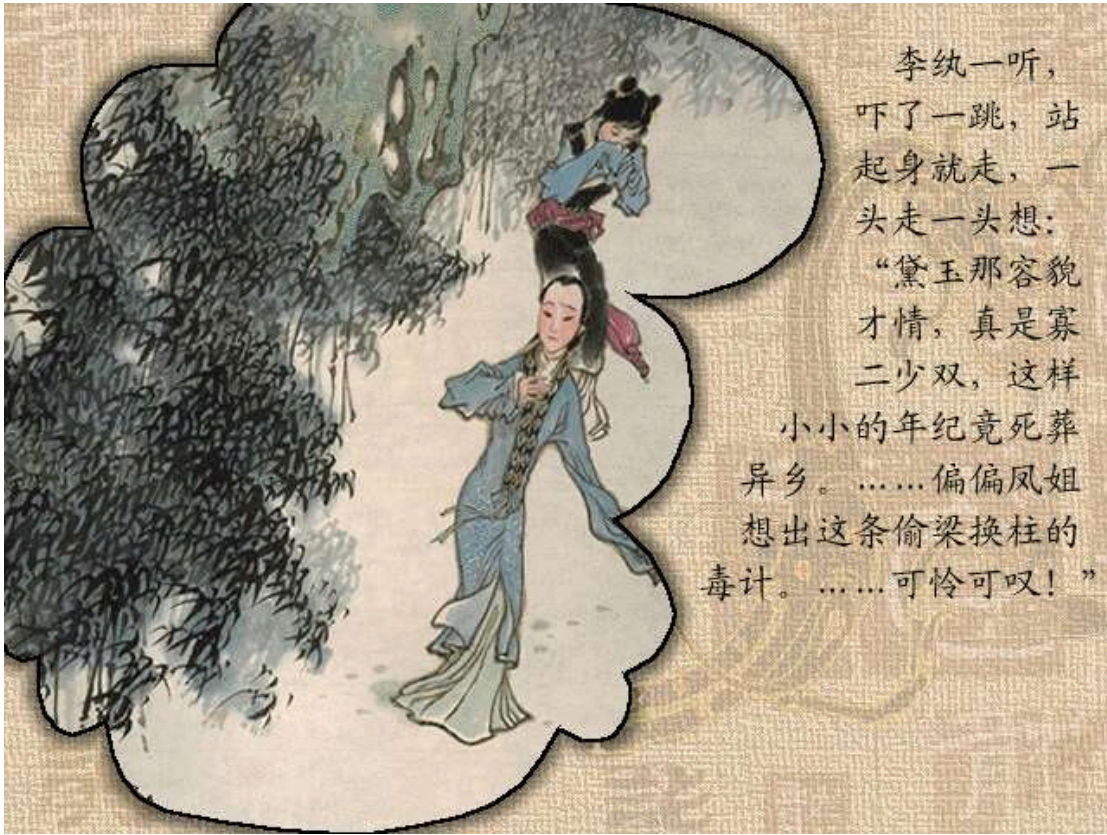 李纨一听，
吓了一跳，站
起身就走，一
头走一头想：
“黛玉那容貌
才情，真是寡
二少双，这样
小小的年纪竟死葬
异乡。……偏偏凤姐
想出这条偷梁换柱的
毒计。……可怜可叹！”